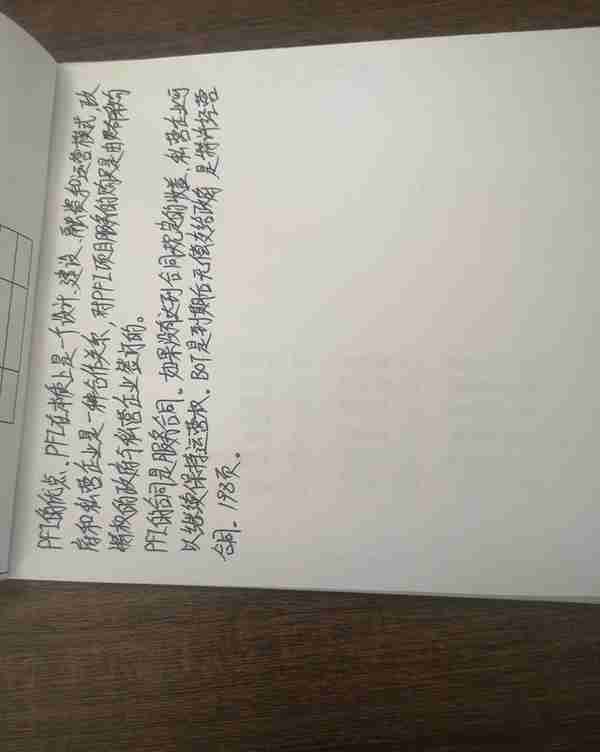 PFI的优点、PFI在本质上是一个设计、建设、融资和运营模式,政
府和私营企业是一种合作关系,对PFI项目服务的购买是由有采购
特权的政府与私营企业签订的。
PFI的合同是服务合同。如果没有达到合同规定的收益,私营企业可
以继续保持运营权、BOT是到期后无偿交给政府 是特许经营
合同、198页。